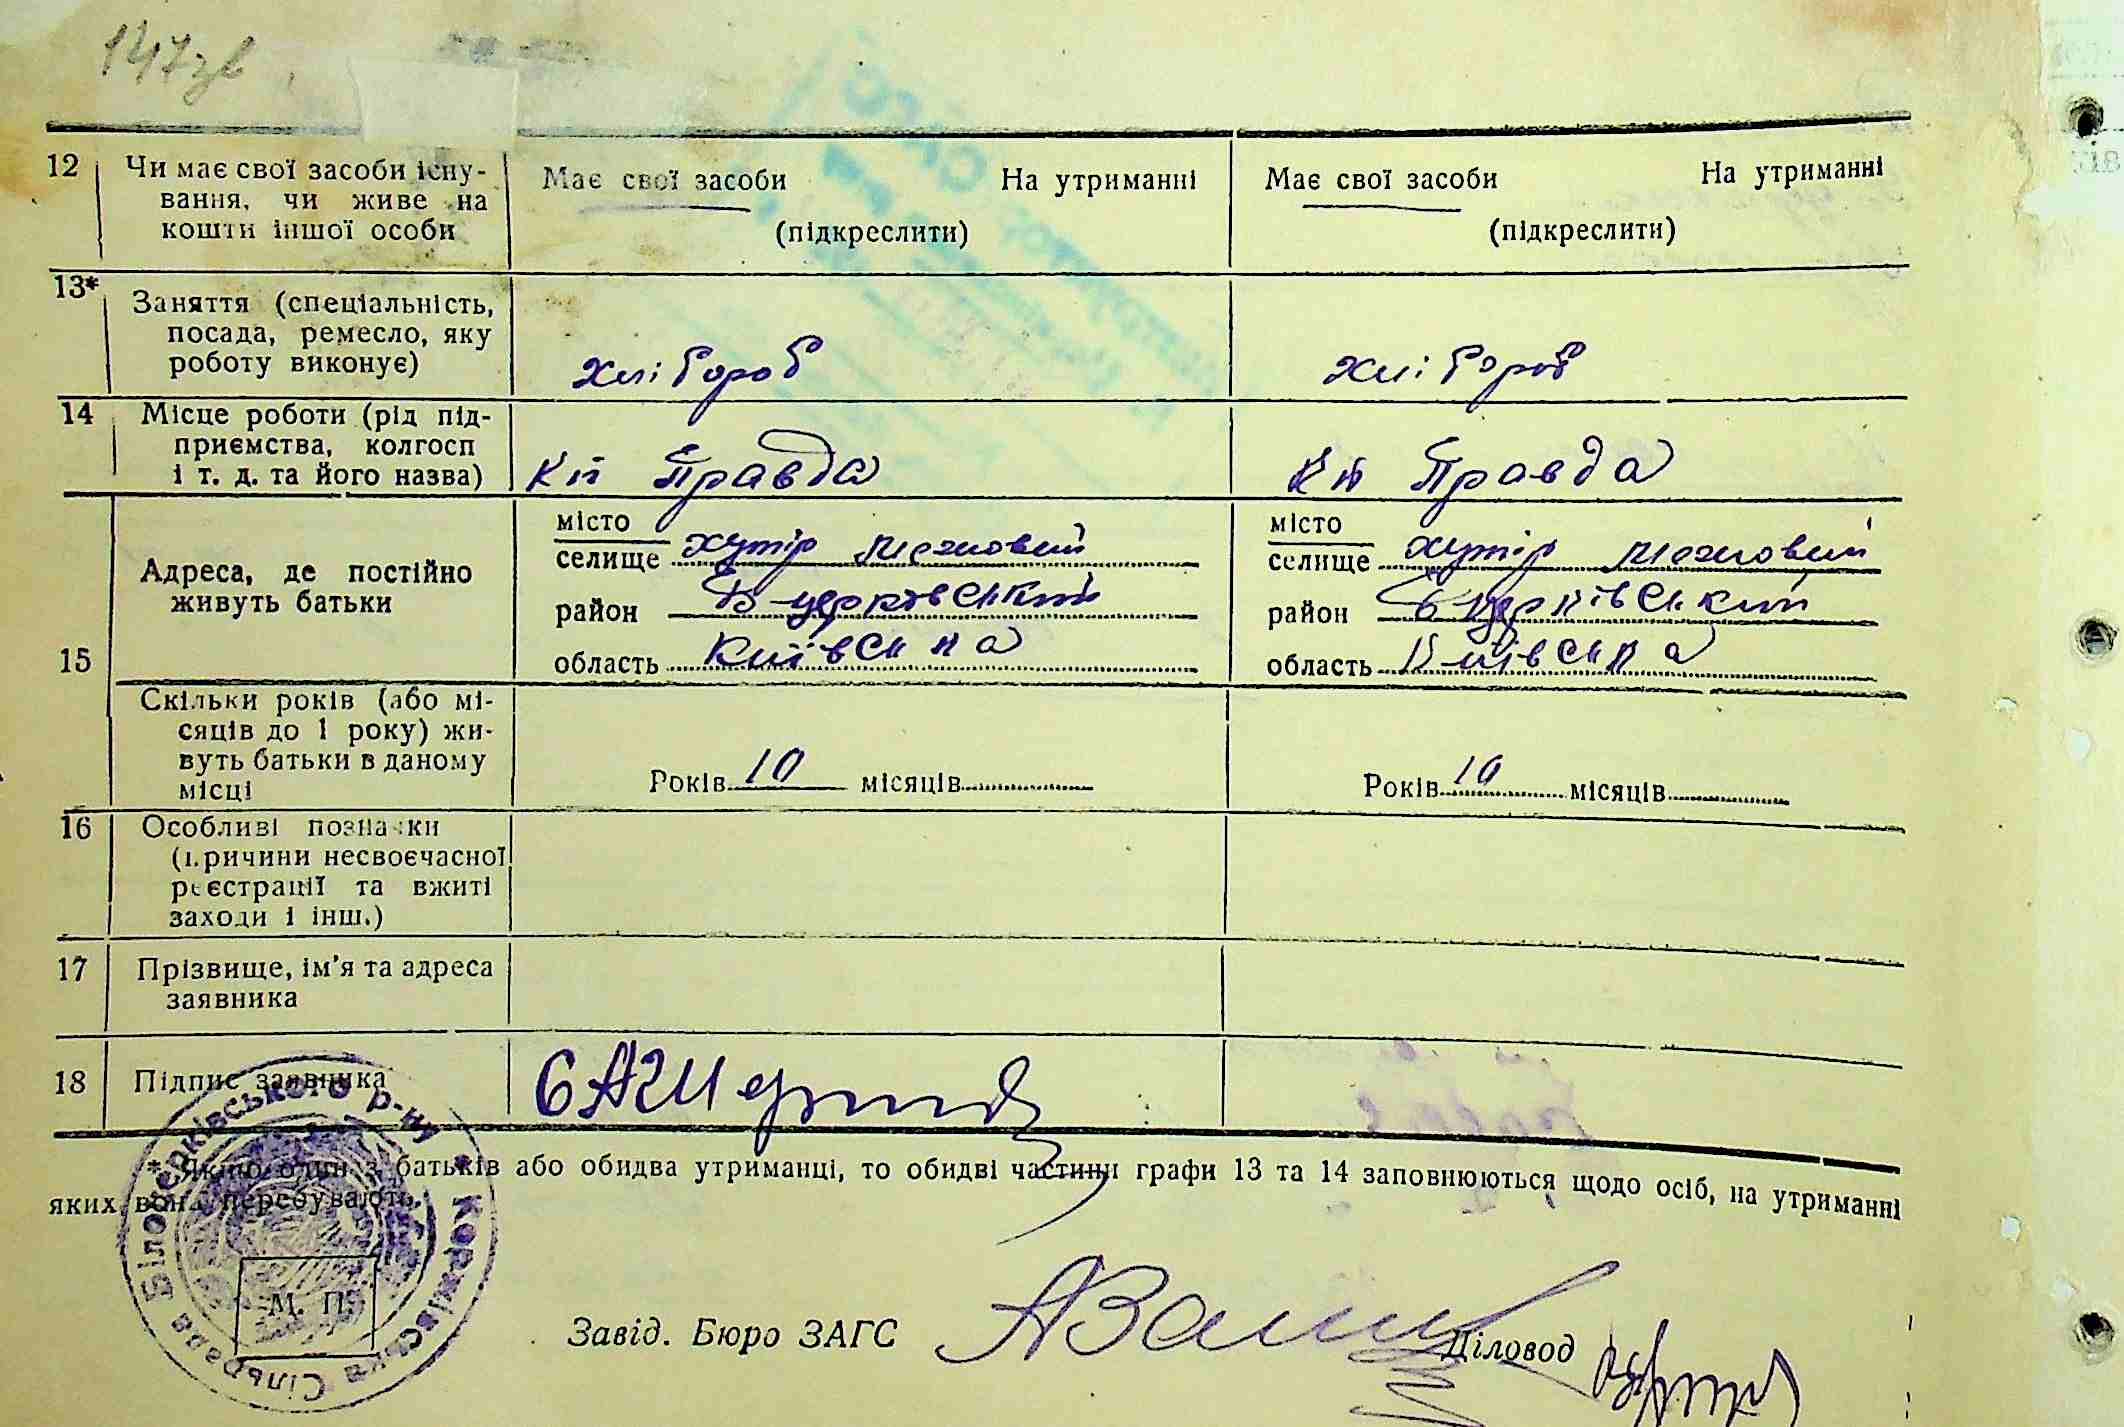 147зв
12 Чи має свої засоби існу-
вання, чи живе на
кошти іншої особи
Має свої засоби На утриманні
(підкреслити)
Має свої засоби На утриманні
(підкреслити)
13* Заняття (спеціальність,
посада, ремесло, яку
роботу виконує)
хлібороб
хлібороб
14 Місце роботи (рід під-
приємства, колгосп
і т. д. та його назва)
Кп Правда
Кп Правда
15
Адреса, де постійно
живуть батьки
місто
селище хутір
район Б-церківський
область Київська
місто
селище хутір
район Б церківський
область Київська
Скільки років (або мі-
сяців до 1 року) жи-
вуть батьки в даному
місці
Років 10 місяців
Років 10 місяців
16 Особливі позначки
(причини несвоєчасної
реєстрації та вжиті
заходи і інш.)
17 Прізвище, ім'я та адреса
заявника
18 Підпис заявника
* Якщо один з батьків або обидва утриманці, то обидві частини графи 13 та 14 заповнюються щодо осіб, на утриманні
яких вони перебувають.
Білоцерківського р-ну * Коржівська Сільрада
М. П.
Завід. Бюро ЗАГС
Діловод